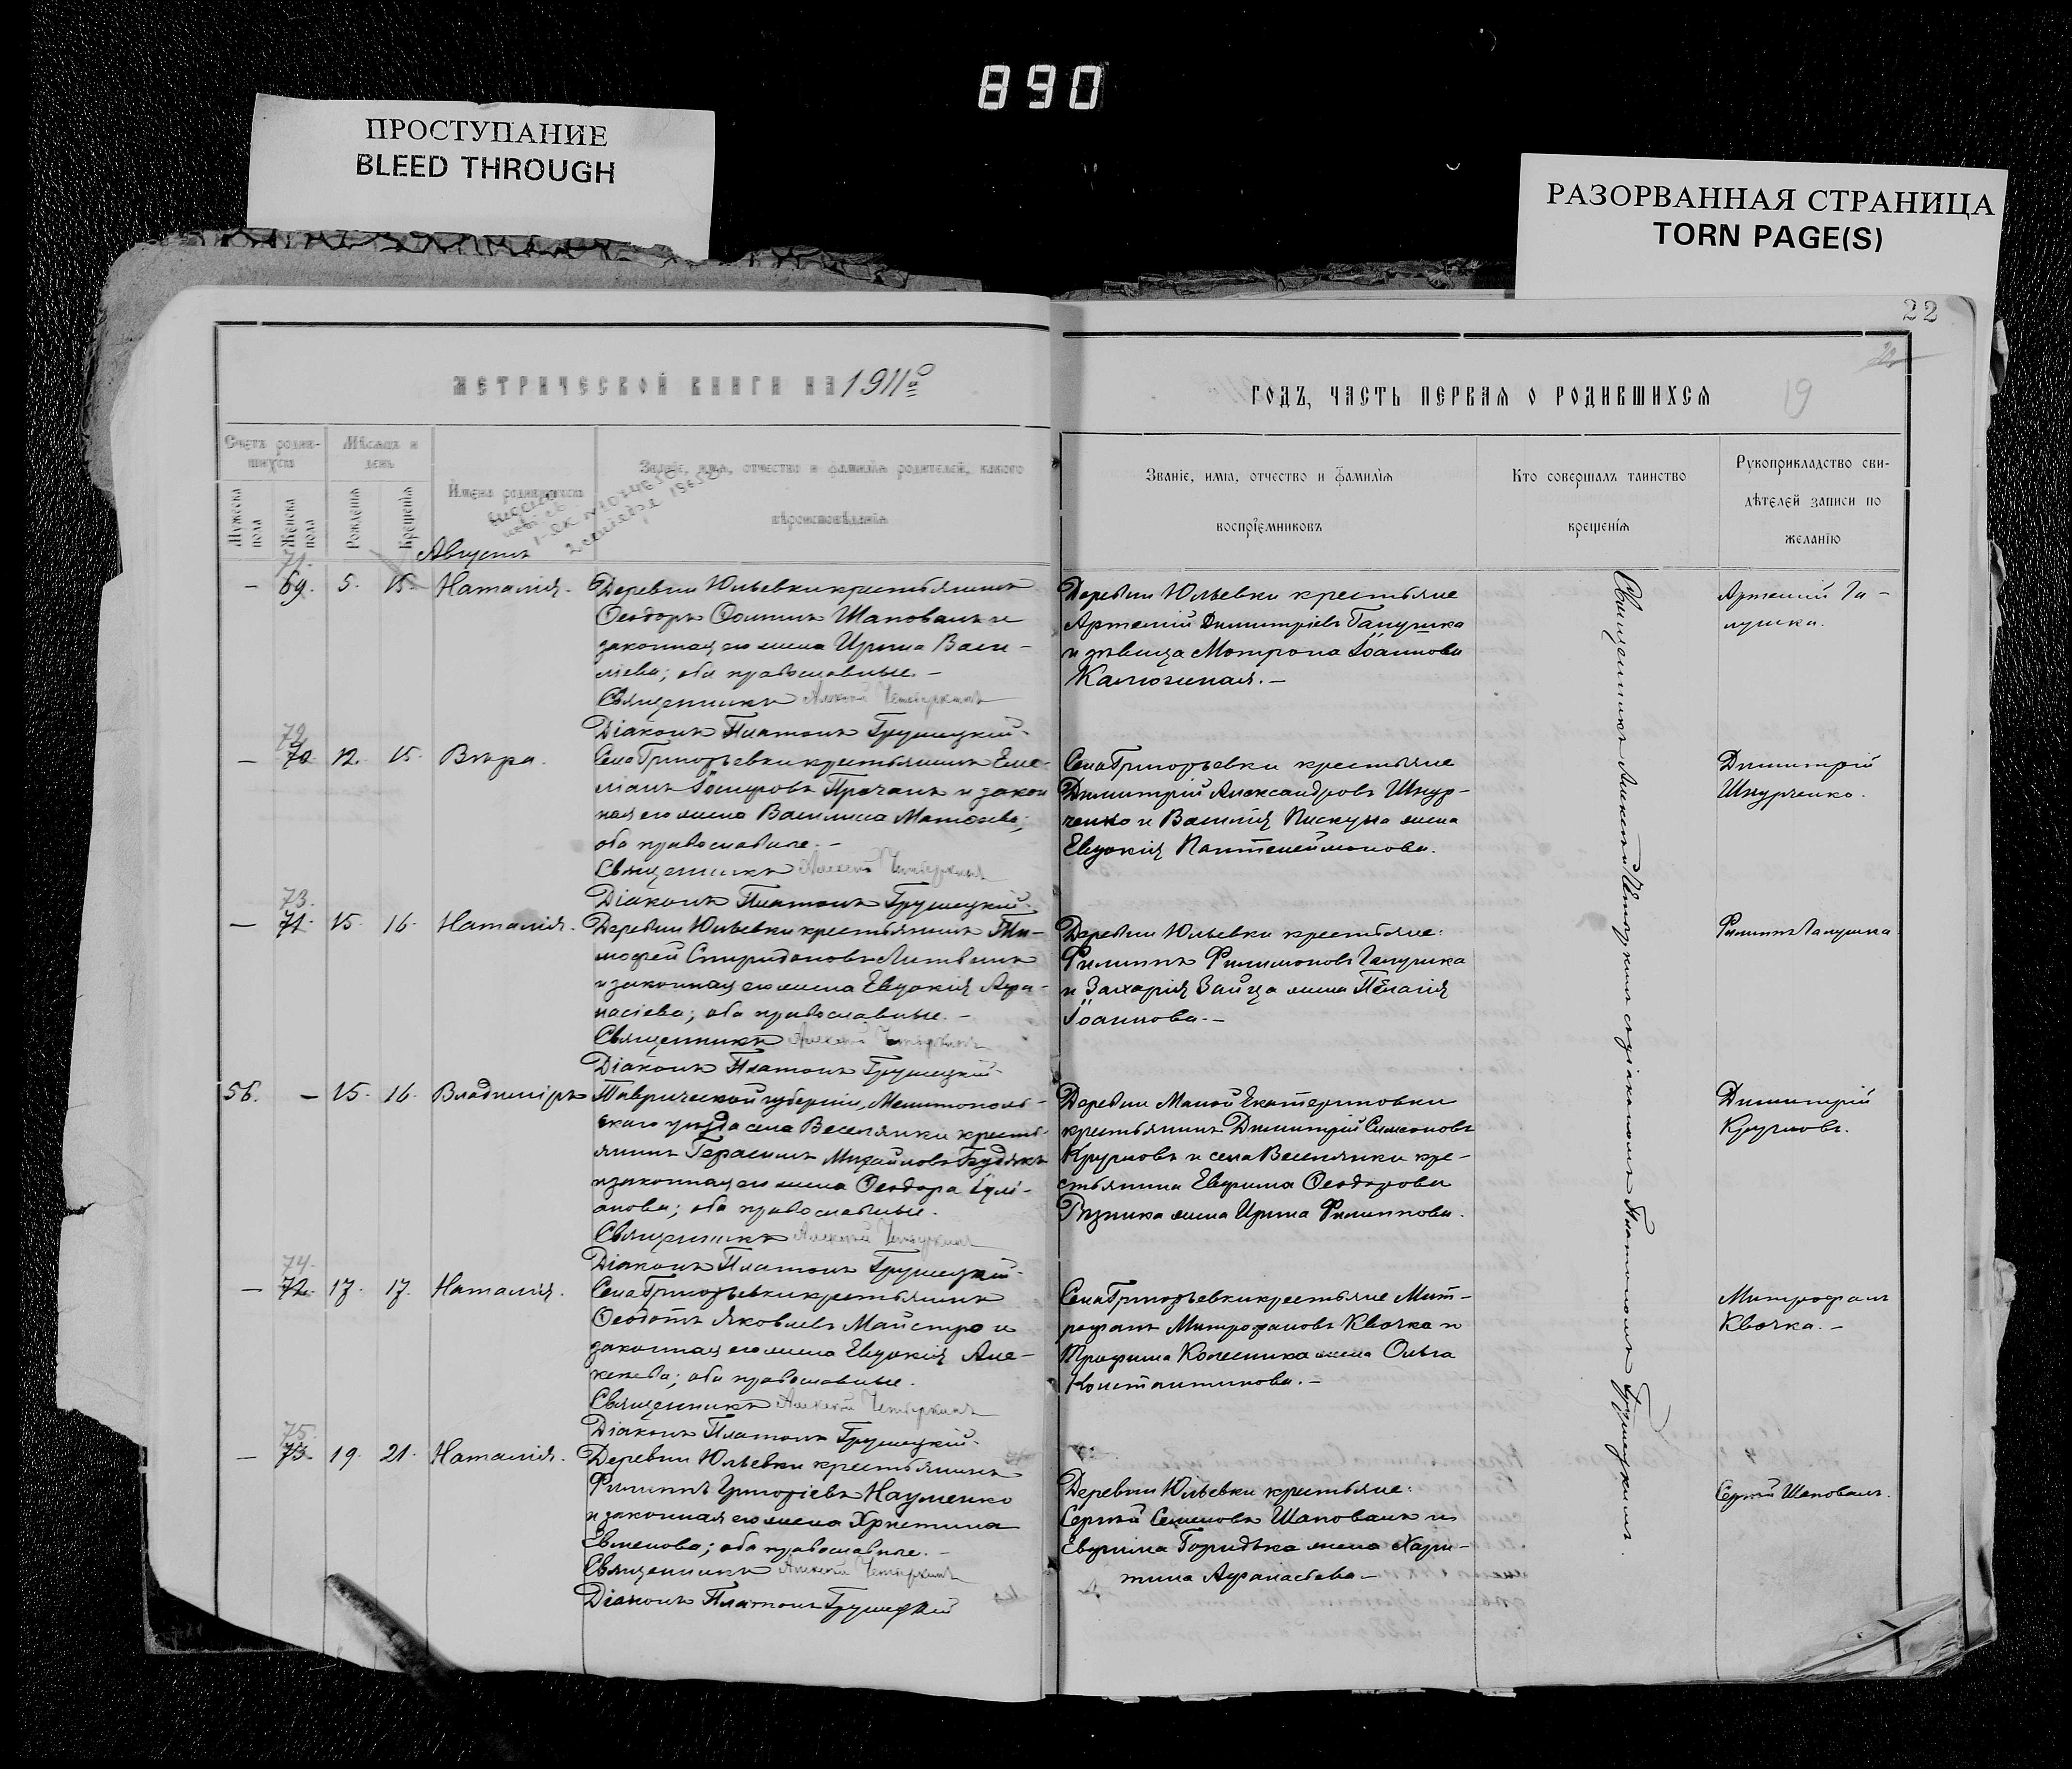 890
ПРОСТУПАНИЕ
BLEED THROUGH
РАЗОРВАННАЯ СТРАНИЦА
TORN PAGE(S)
22
МЕТРИЧЕСКОЙ КНИГИ НА 1911й
Счетъ родив-
шихся
Мѣсяцъ и
день
Мужеска
пола
Женска
пола
Рожденія
Крещенія
Имена родившихся
Званіе, имя, отчество и фамилія родителей, какого
вѣроисповѣданія
Августъ
71.
— 69. 5. 15. Наталія.
Деревни Юльевки крестьянинъ
Ѳеодоръ Ѳоминъ Шаповалъ и
законная его жена Ирина Васи-
ліева; оба православные. —
Священникъ Алексѣй Четыркинъ
Діаконъ Платонъ Грушецкій.
72.
— 70. 12. 15. Вѣра.
Села Григорьевки крестьянинъ Еме-
ліанъ Іосифовъ Прачанъ и закон
ная его жена Василиса Матѳеева;
оба православные. —
Священникъ Алексѣй Четыркинъ
Діаконъ Платонъ Грушецкій.
73.
— 71. 15. 16. Наталія.
Деревни Юльевки крестьянинъ Ти-
мофей Спиридоновъ Литвинъ
и законная его жена Евдокія Афа-
насіева; оба православные. —
Священникъ Алексѣй Четыркинъ
Діаконъ Платонъ Грушецкій.
56. — 15. 16. Владиміръ
Таврической губерніи, Мелитополь-
скаго уѣзда села Веселянки кресть-
янинъ Герасимъ Михайловъ Будякъ
и законная его жена Ѳеодора Іулі-
анова; оба православные.
Священникъ Алексѣй Четыркинъ
Діаконъ Платонъ Грушецкій.
74.
— 72. 17. 17. Наталія.
Села Григорьевки крестьянинъ
Ѳеодотъ Яковлевъ Майстро и
законная его жена Евдокія Але-
ксѣева; оба православные.
Священникъ Алексѣй Четыркинъ
Діаконъ Платонъ Грушецкій.
75.
— 73. 19. 21. Наталія.
Деревни Юльевки крестьянинъ
Филиппъ Григоріевъ Науменко
и законная его жена Христина
Евменова; оба православные. —
Священникъ Алексѣй Четыркинъ
Діаконъ Платонъ Грушецкій
ГОДЪ, ЧАСТЬ ПЕРВАЯ О РОДИВШИХСЯ
19
Званіе, имя, отчество и фамилія
воспріемниковъ
Кто совершалъ таинство
крещенія
Рукоприкладство сви-
дѣтелей записи по
желанію
Деревни Юльевки крестьяне
Артемій Димитріевъ Галушка
и дѣвица Матрона Іоаннова
Калюжная. —
Артемій Га-
лушка.
Села Григорьевки крестьяне
Димитрій Александровъ Шнур-
ченко и Василія Пискуна жена
Евдокія Пантелеймонова.
Димитрій
Шнурченко.
Деревни Юльевки крестьяне:
Филиппъ Филимоновъ Галушка
и Захарія Зайца жена Пелагія
Іоаннова. —
Филиппъ Галушка
Деревни Малой Екатериновки
крестьянинъ Димитрій Симеоновъ
Кругловъ и села Веселянки кре-
стьянина Евфима Ѳеодорова
Рѣзника жена Ирина Филиппова.
Димитрій
Кругловъ.
Села Григорьевки крестьяне Мит-
рофанъ Митрофановъ Квочка и
Трофима Колесника жена Ольга
Константинова. —
Митрофанъ
Квочка. —
Деревни Юльевки крестьяне:
Сергѣй Семеновъ Шаповалъ и
Евфима Горидька жена Хари-
тина Афанасьева —
Сергѣй Шаповалъ.
Священникъ Алексѣй Четыркинъ съ діакономъ Платономъ Грушецкимъ.